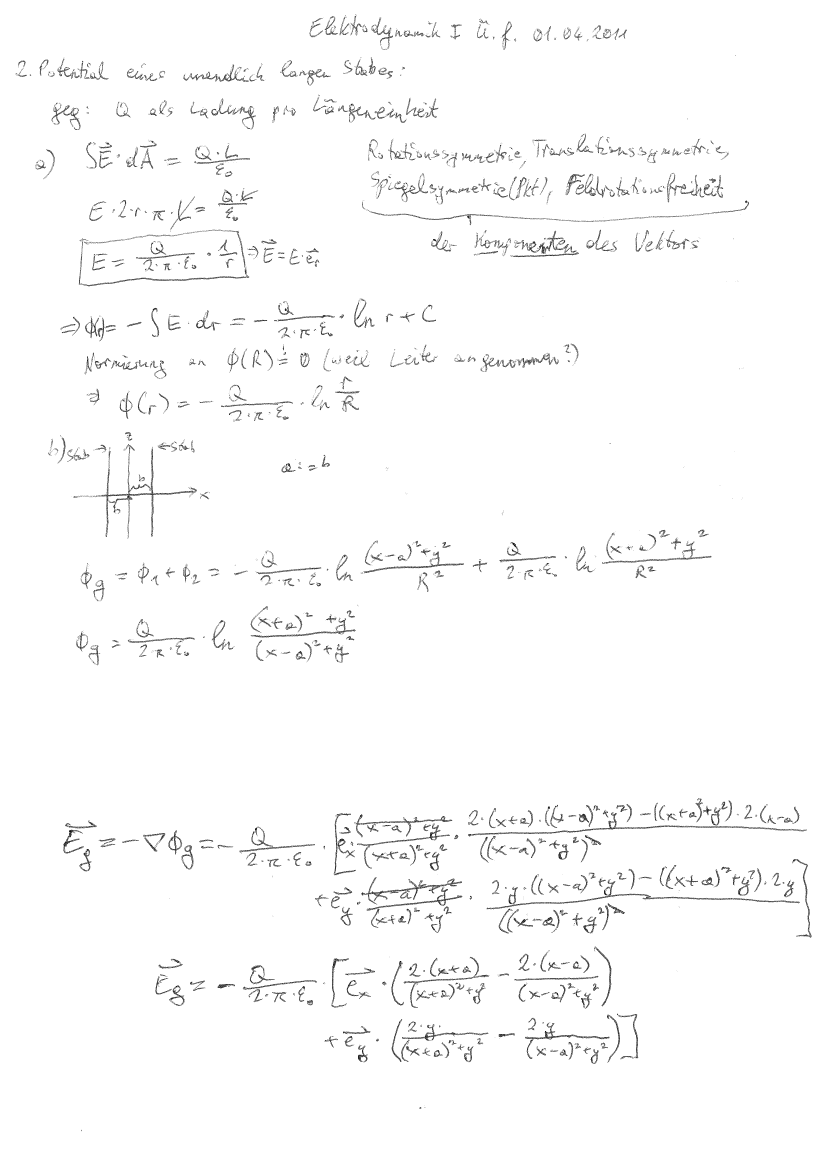 Elektrodynamik I Ü. f. 01.04.2011
2. Potential eines unendlich langen Stabes:
geg: Q als Ladung pro Längeneinheit
a) ∫E⃗·dA⃗ = Q·L/ε₀
Rotationssymmetrie, Translationssymmetrie,
E·2·r·π·L = Q·L/ε₀
Spiegelsymmetrie(Pkt), Feldrotationsfreiheit
der Komponenten des Vektors
E = Q/(2·π·ε₀) · 1/r ⇒ E⃗ = E·e⃗r
⇒ ϕ(r) = - ∫E·dr = - Q/(2·π·ε₀) · ln r + C
Normierung an ϕ(R) != 0 (weil Leiter angenommen?)
⇒ ϕ(r) = - Q/(2·π·ε₀) · ln r/R
b) Stab → z ← Stab
a := b
b
x
b
ϕg = ϕ₁ + ϕ₂ = - Q/(2·π·ε₀) · ln ((x-a)²+y²)/R² + Q/(2·π·ε₀) · ln ((x+a)²+y²)/R²
ϕg = Q/(2·π·ε₀) · ln ((x+a)²+y²)/((x-a)²+y²)
E⃗g = -∇ϕg = - Q/(2·π·ε₀) · [e⃗x · ((x-a)²+y²)/((x+a)²+y²) · (2·(x+a)·((x-a)²+y²) - ((x+a)²+y²)·2·(x-a))/((x-a)²+y²)²
+ e⃗y · ((x-a)²+y²)/((x+a)²+y²) · (2·y·((x-a)²+y²) - ((x+a)²+y²)·2·y)/((x-a)²+y²)²]
E⃗g = - Q/(2·π·ε₀) · [e⃗x · (2·(x+a)/((x+a)²+y²) - 2·(x-a)/((x-a)²+y²))
+ e⃗y · (2·y/((x+a)²+y²) - 2·y/((x-a)²+y²))]